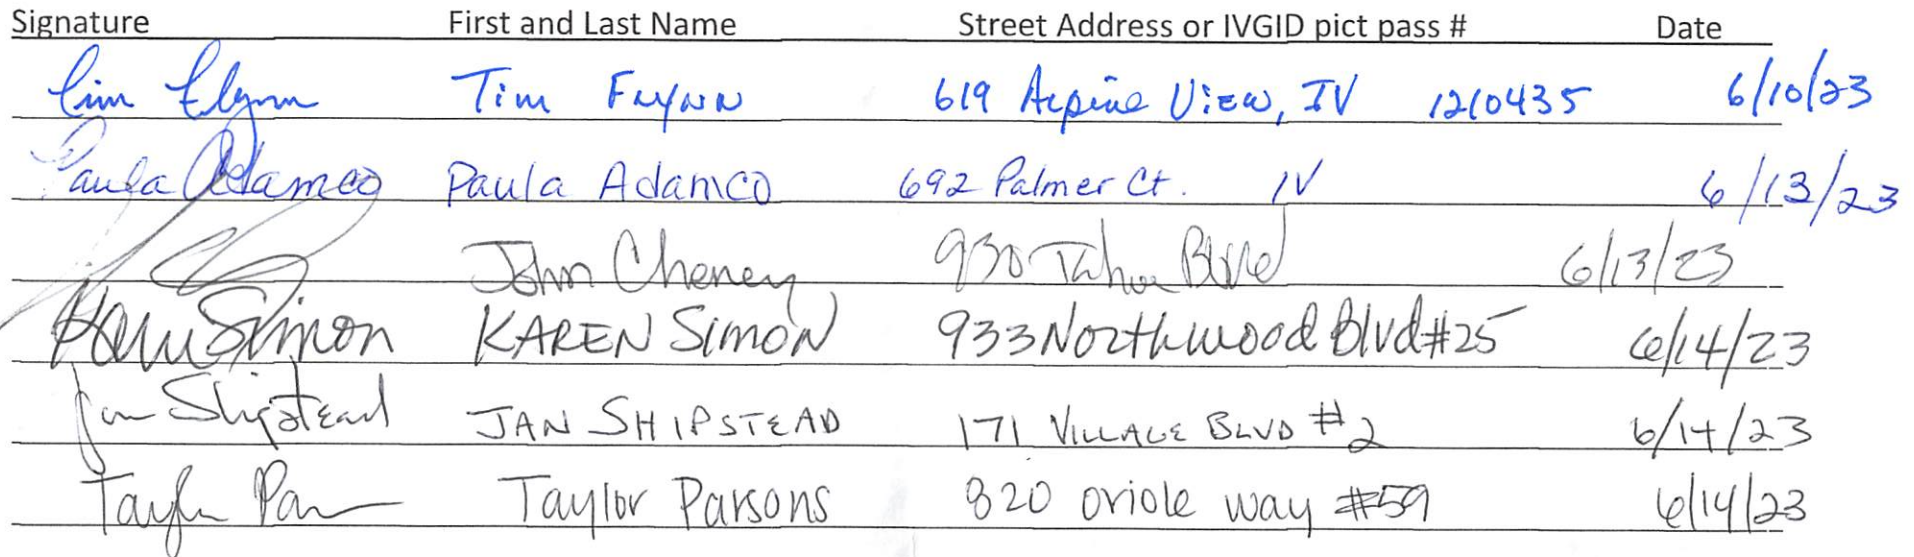 Signature First and Last Name Street Address or IVGID pict pass # Date
Tim Flynn Tim Flynn 619 Alpine View, IV 1210435 6/10/23
Paula Adamco Paula Adamco 692 Palmer Ct. IV 6/13/23
John Cheney 930 Tahoe Blvd 6/13/23
Karen Simon KAREN SIMON 933 Northwood Blvd #25 6/14/23
Jan Shipstead JAN SHIPSTEAD 171 VILLAGE BLVD #2 6/14/23
Taylor Par Taylor Parsons 820 Oriole way #59 6/14/23